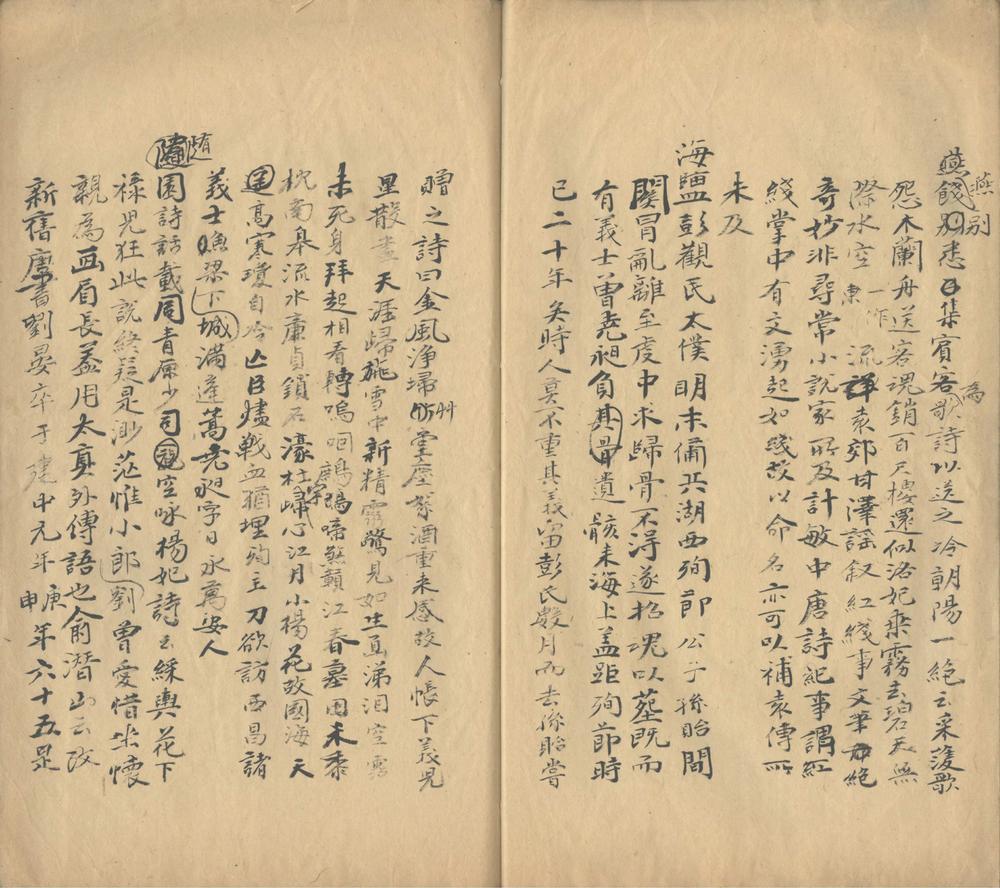 燕餞別悉集賓客歌詩以送之冷朝陽一絕云采淩歌
燕別
為
怨木蘭舟送客魂銷百尺樓還似洛妃乘霧去碧天無
際水空流
一作東
袁郊甘澤謠叙紅綫事文筆絕
奇妙非尋常小說家所及計敏中唐詩紀事謂紅
綫掌中有文湧起如綫故以命名亦可以補袁傳所
未及
海鹽彭觀民太僕明末備兵湖西殉節公子孫貽間
關冒亂離至虔中求歸骨不得遂招魂以塟既而
有義士曾堯昶負其骨遺骸來海上蓋距殉節時
已二十年矣時人莫不重其義留彭氏數月而去孫貽嘗
贈之詩曰金風淨埽臺塵絮酒重来感故人帳下義兒
星散盡天涯歸旐雪中新精靈驚見如生面涕泪空霑
未死身拜起相看轉嗚咽鷓鴣啼煞贛江春墓田未黍
枕南皋流水廉貞鎖石濠杜宇歸心江月小楊花故國海天
高寒瓊自冷亡日燼戰血猶埋殉主刀欲訪西昌諸
義士漁梁下城滿蓬蒿堯昶字日永萬安人
隨
園詩話載周青原少司空咏楊妃詩云綵輿花下
祿兒狂此說終疑是渺茫惟小郎劉曾愛惜坐懷
親為画眉長蓋用太真外傳語也俞潛山云攷
新舊唐書劉晏卒于建中元年庚申年六十五是